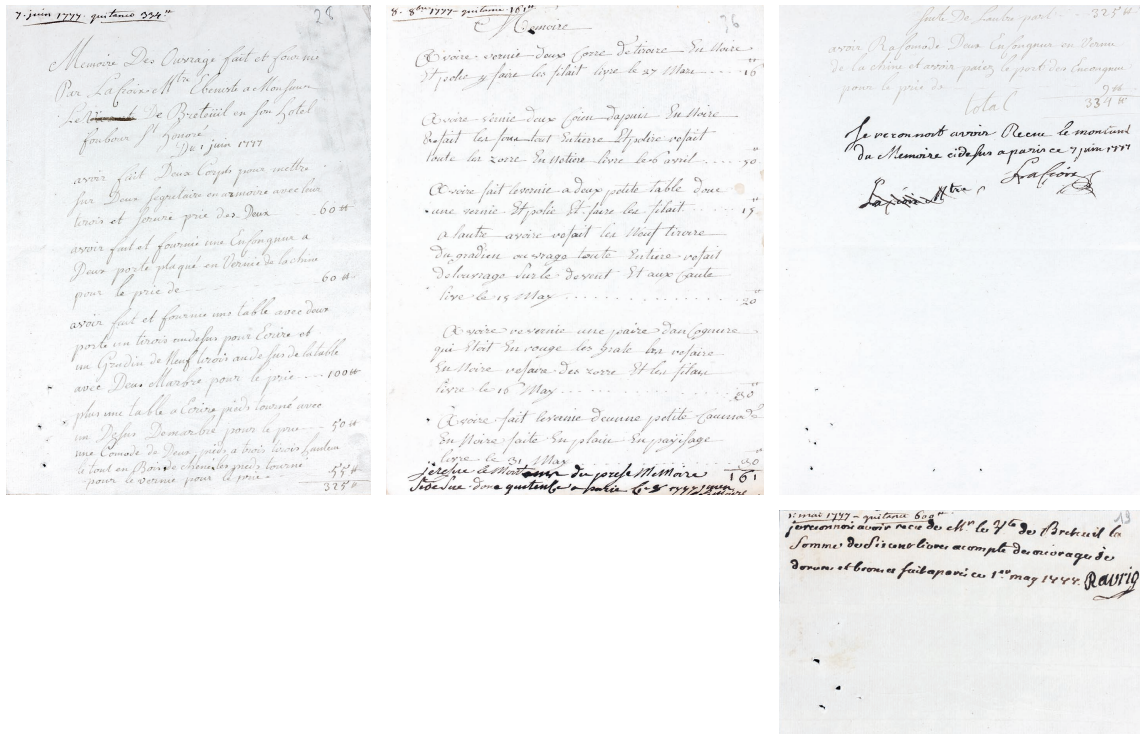 7. juin 1777. quitance 334tt
28
Memoire Des Ouvrage fait et fournis
Par LaCroix Mtre Ebeniste a Monsieur
Le De Breteüil en Son hotel
foubour St honoré
Du 1 juin 1777
avoir fait Deux Corps pour mettre
Sur Deux Segretaire en armoire avec leur
tirois et Serure prie des Deux 60tt
avoir fait et fournie une EnSongnur a
Deux porte plaqué en Vernie de la chine
pour le prie de 60tt
avoir fait et fournie une table avec deux
porte un tirois audesus pour Ecrire et
un Gradin de Neuf tirois audesus de la table
avec Deux Marbre pour le prie 100tt
plus une table a Ecrire pieds tourné avec
un Desus De marbre pour le prie 50tt
une Comode de Deux pieds a trois tirois hauteur
le tout en Bois de pieds tourne
pour le vernie pour le prie 55tt
325tt
8. 8bre 1777. quitance 161tt
36
Memoire
Avoire vernie deux Corre de tiroire En Noire
Et polie y faire les filait livre le 27 Mars 16tt
Avoire vernie deux Coien En Noire
Refait les fons tout Entiere Et polie refait
toute les zorre En Notiere livre le 6 avril 50
Avoire fait le vernie a deux petite table donc
une vernie Et polie Et faire les filait 15tt
a lautre avoire refait les Neuf tiroire
du gradien ouvrage toute Entiere refait
delouvrage Sur le devent Et aux Caute
livre le 15 May 20tt
Avoire revernie une paire danCognure
qui Etoit En rouge les grate les refaire
En Noire refaire des zorre Et les filais
livre le 16 May 30tt
Avoire fait le vernie deunne petite
En Noire faite En plain En payisage
livre le 31 May 30tt
jeresue le du preset MeMoire 161
Sidesue donc quitence a parie le 8
Suite De lautre part 325tt
avoir Rasomode Deux EnSongnur en Vernie
de la chine et avoir païez le port des Encongnur
pour le prie de 9tt
total 334tt
Je reconnoit avoir Recue le montant
du Memoire cidesus a paris ce 7 juin 1777
LaCroix
Lacroix Mtre
1. mai 1777 - quitance 600tt
19
je reconnois avoir recu de Mr le Vte de Breteuil la
Somme de Sixcent livres acompte des ouvrages de
dorure et bronze fait a paris ce 1er may 1777. Ravrio